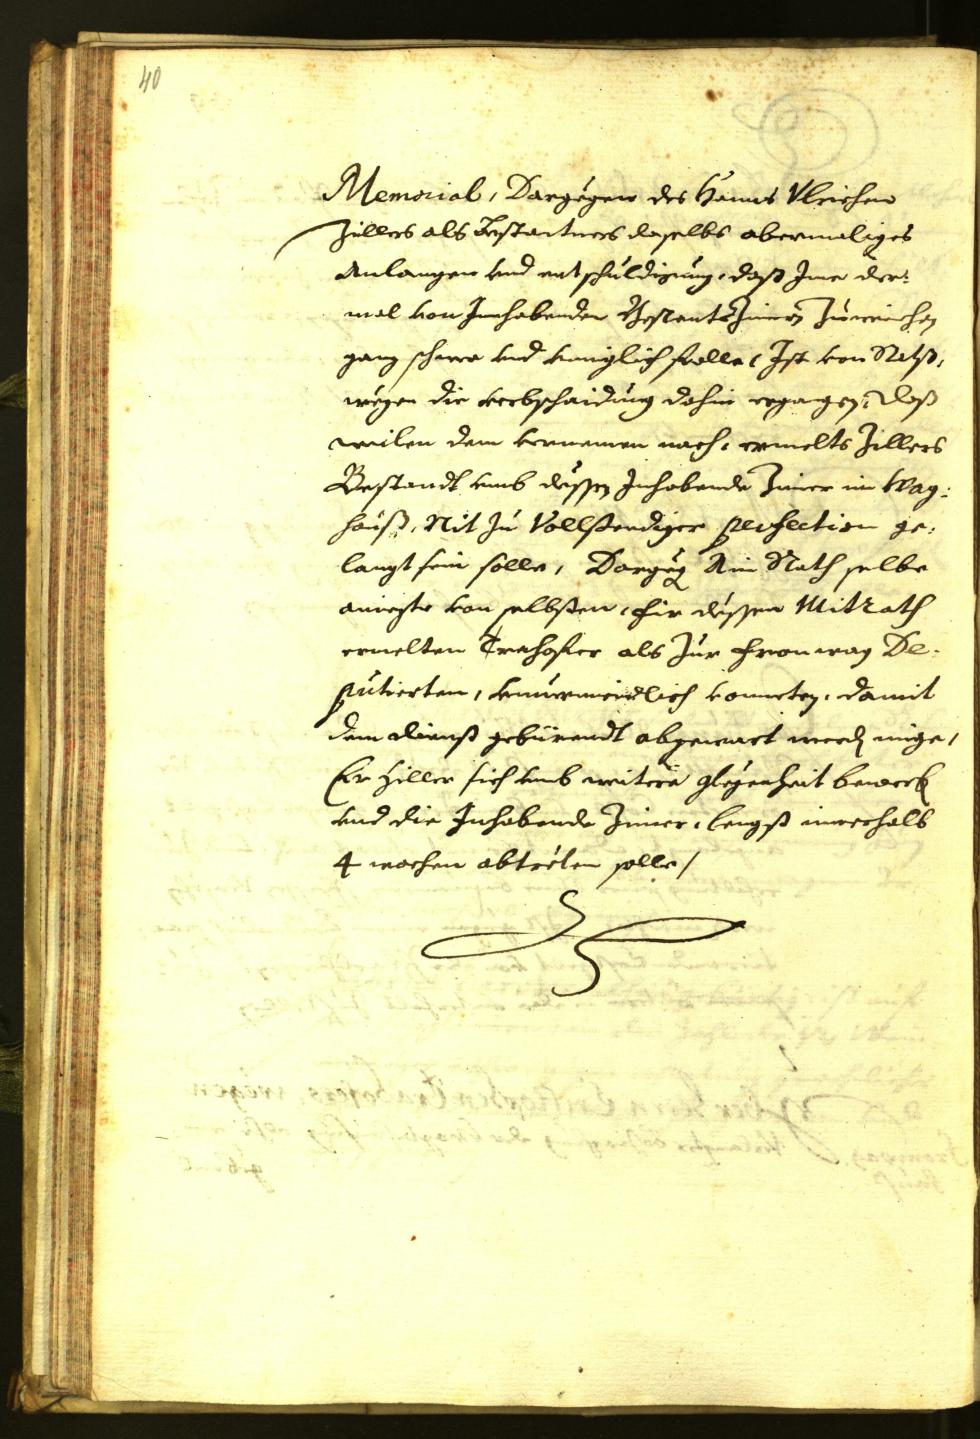 40
Memorial, Dargegen des Hanns Vlrichen
Zillers als Bestantners daselbs abermaliges
Anlangen vnd entschuldigung, daß Ime der:
mal von Innhabenden Bestants Zimern zuweichen
ganz schwer vnd vnmiglich falle, Ist von Rats,
wegen die verbschaidung dahin ergangen, daß
weilen dem vernemen nach, ermelts Zillers
Bestandt vmb dessen Inhabende Zimer im Wag:
hauß, Nit zu Vollstendiger perfection ge:
langt sein solle, Dargegen Ain Rath selbe
anieze von selbsten, fir dessen Mitrath
ermelten Trehofer als zur Fronwag De:
putierten, vnuermeidlich vonneten, damit
dem dienst gebürendt abgewart werden mige,
Er Ziller sich vmb weitere glegenheit bewerben
vnd die Inhabende Zimer, lengst innerhalb
4 wochen abtreten solle /